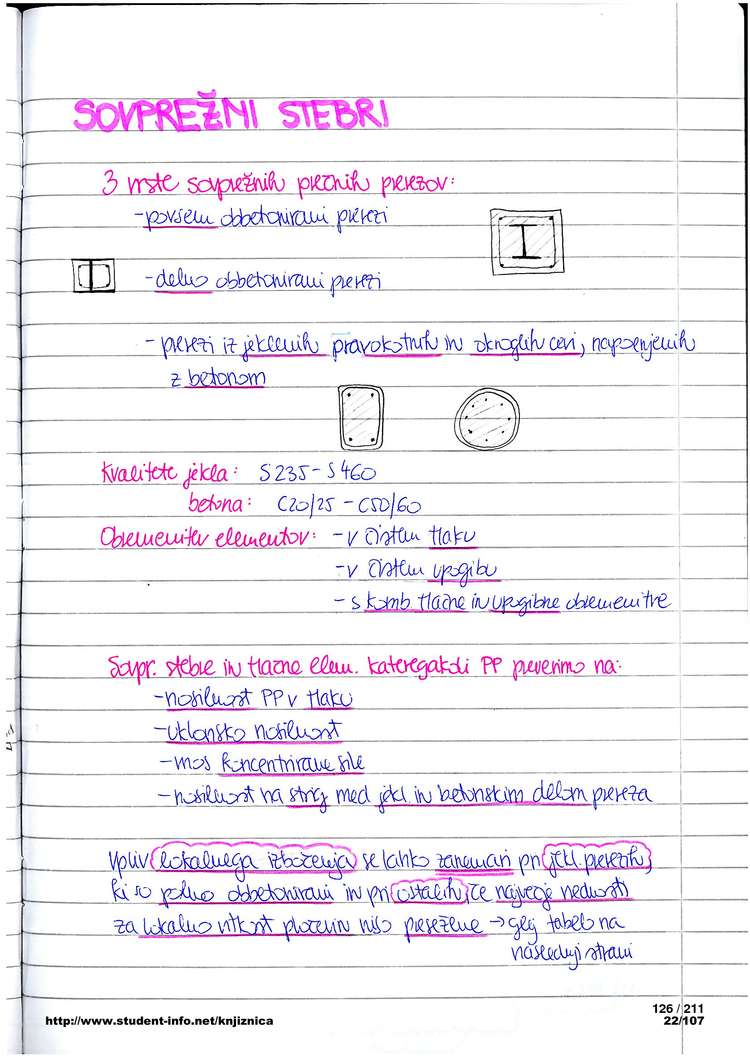 SOVPREŽNI STEBRI
3 vrste sovprežnih prečnih prerezov:
-povsem obbetonirani prerezi
-delno obbetonirani prerezi
-prerezi iz jeklenih pravokotnih in okroglih cevi, napolnjenih
z betonom
Kvalitete jekla: S235-S460
betona: C20/25 - C50/60
Obremenitev elementov: -v čistem tlaku
-v čistem upogibu
-s komb tlačne in upogibne obremenitve
Sovpr. stebre in tlačne elem. kateregakoli PP preverimo na:
-nosilnost PP v tlaku
-uklonsko nosilnost
-vnos koncentrirane sile
-nosilnost na strig med jekl. in betonskim delom prereza
Vpliv lokalnega izbočenja se lahko zanemari pri jekl. prerezih,
ki so polno obbetonirani in pri ostalih, če največje vrednosti
za lokalno vitkost pločevin niso presežene → glej tabelo na
naslednji strani
126 / 211
http://www.student-info.net/knjiznica 22/107